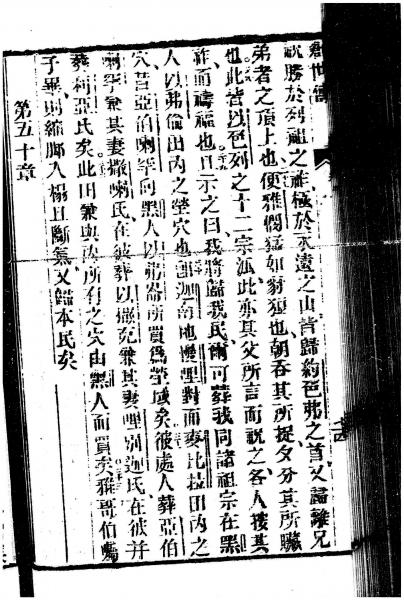 創世傳
祝勝於列祖之祚極於永遠之山皆歸約色弗之首又論離兄
弟者之頂上也便雅憫猛如豺狼也朝吞其所捉夕分其所贓
也此皆以色列之十二宗派此亦其父所言而祝之各人按其
祚而禱福也且示之曰我將歸我民爾可葬我同諸祖宗在黑
人以弗倫田內之塋穴也即迦南地幔哩對面麥比拉田內之
穴昔亞伯喇罕向黑人以弗崙所買為塋域矣彼處人葬亞伯
喇罕兼其妻撒喇氏在彼葬以撒克兼其妻哩別迦氏在彼并
葬利亞氏矣此田兼與內所有之穴由黑人而買矣雅哥伯囑
子畢則縮腳入榻且斷氣又歸本民矣
第五十章